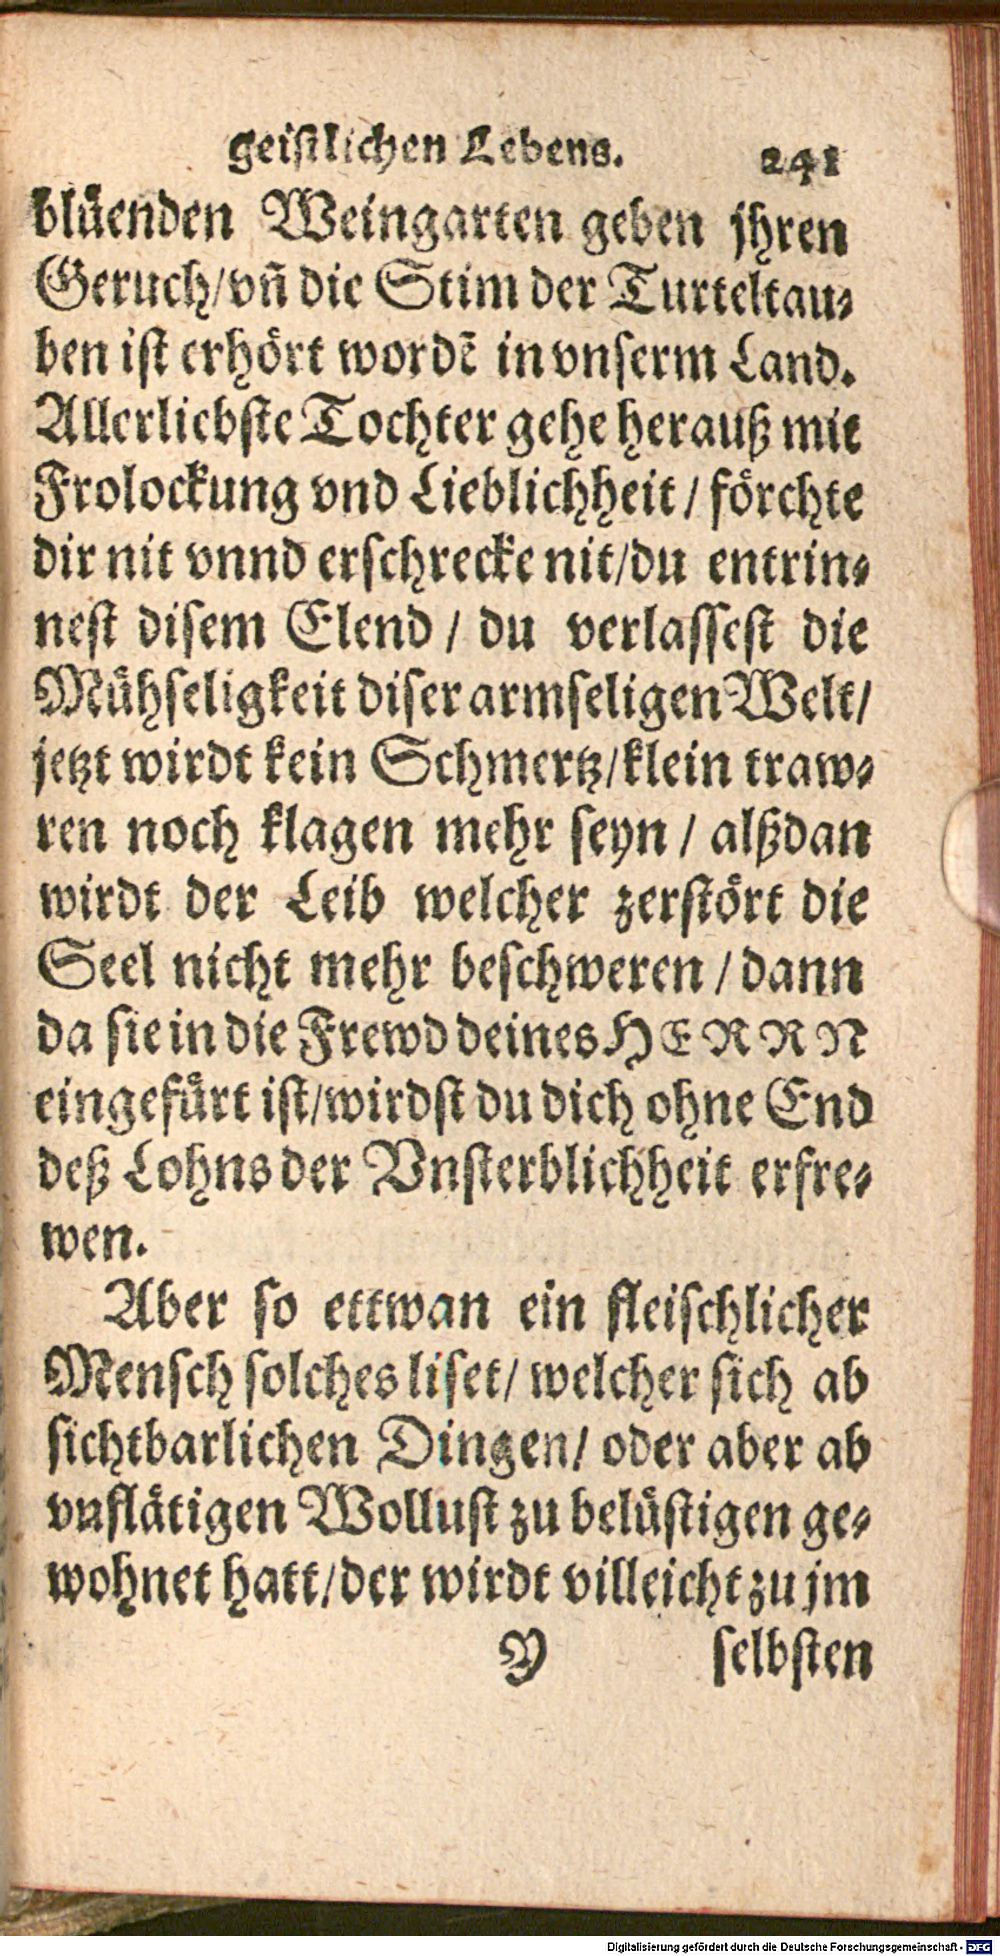 geistlichen Lebens. 241
blüenden Weingarten geben jhren
Geruch/vñ die Stim der Turteltau⸗
ben ist erhört wordē in vnserm Land.
Allerliebste Tochter gehe herauß mit
Frolockung vnd Lieblichheit/ förchte
dir nit vnnd erschrecke nit/du entrin⸗
nest disem Elend/ du verlassest die
Mühseligkeit diser armseligen Welt/
jetzt wirdt kein Schmertz/klein traw⸗
ren noch klagen mehr seyn/ alßdan
wirdt der Leib welcher zerstört die
Seel nicht mehr beschweren/dann
da sie in die Frewd deines HERRN
eingefürt ist/wirdst du dich ohne End
deß Lohns der Vnsterblichheit erfre⸗
wen.
Aber so ettwan ein fleischlicher
Mensch solches liset/ welcher sich ab
sichtbarlichen Dingen/ oder aber ab
vnflätigen Wollust zu belüstigen ge⸗
wohnet hatt/der wirdt villeicht zu jm
Y selbsten
Digitalisierung gefördert durch die Deutsche Forschungsgemeinschaft - DFG